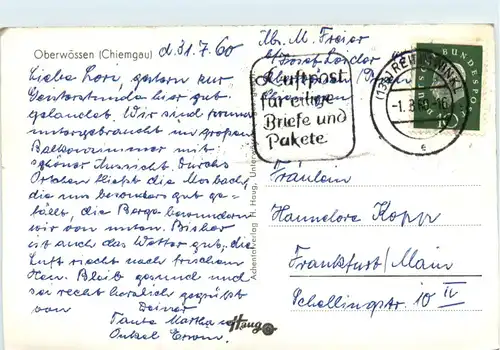 Oberwössen (Chiemgau)
d. 31. 7. 60
Liebe Lori, gestern zur
Geisterstunde hier gut
gelandet. Wir sind prima
untergebracht im großen
Balkonzimmer mit
schöner Aussicht. Durchs
Örtchen fließt die
die uns besonders gut ge-
fällt, die Berge bewundern
wir von unten. Bisher
ist auch das Wetter gut, die
Luft riecht nach frischem
Heu. Bleib gesund und
sei recht herzlich gegrüßt
von Deiner
Tante Martha u.
Onkel Erwin.
Abs. M. Freier
Luftpost
für eilige
Briefe und
Pakete
(13b) REIT IM WINKL
-1. 8. 60 - 16
e
DEUTSCHE BUNDESPOST
10
Achentalverlag H. Haug, Unter
Haug
Fräulein
Hannelore Kopp
Frankfurt/Main
Schellingstr. 10 IV